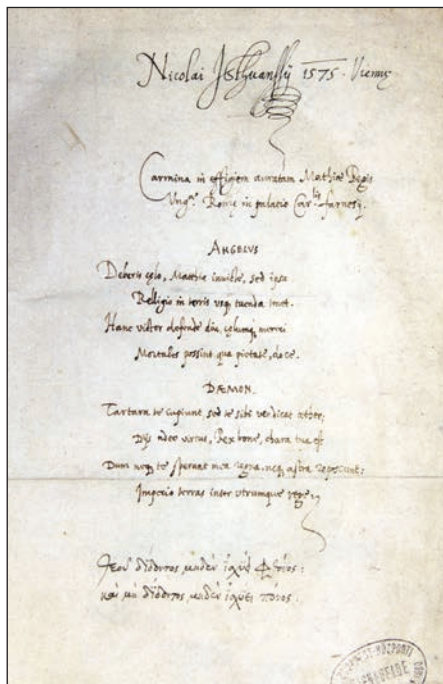 Nicolai Isthuanffij 1575. Viennę
Carmina in effigiem auratam Mathiæ Regis
Romę in palatio Car.lis farnesij.
ANGELVS
Deberis cęlo, Matthia inuicte, sed ipsa
Relligio in terris usq tuenda tenet.
Hanc victor defende diu, cęlumq mereri
Mortales possint qua pietate, doce.
DÆMON.
Tartara te cupiunt, sed te sibi vendicat æther;
Dijs adeo virtus, Rex bone, chara tua est
Dum neq te spernat mea regna, neq astra reposcunt:
Imperio terras inter utrumque rege
Θεοῦ διδόντος, μηδὲν ἰσχύει φθόνος:
καὶ μὴ διδόντος, μηδὲν ἰσχύει πόνος.